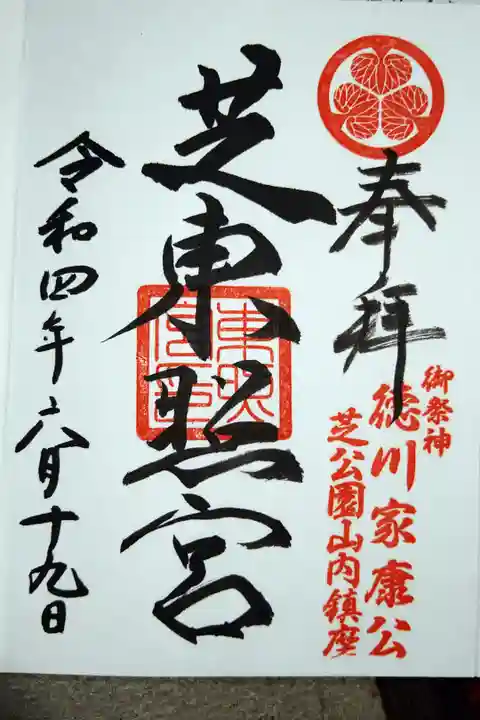 奉拝
御祭神
徳川家康公
芝公園山内鎮座
芝東照宮
令和四年六月十九日